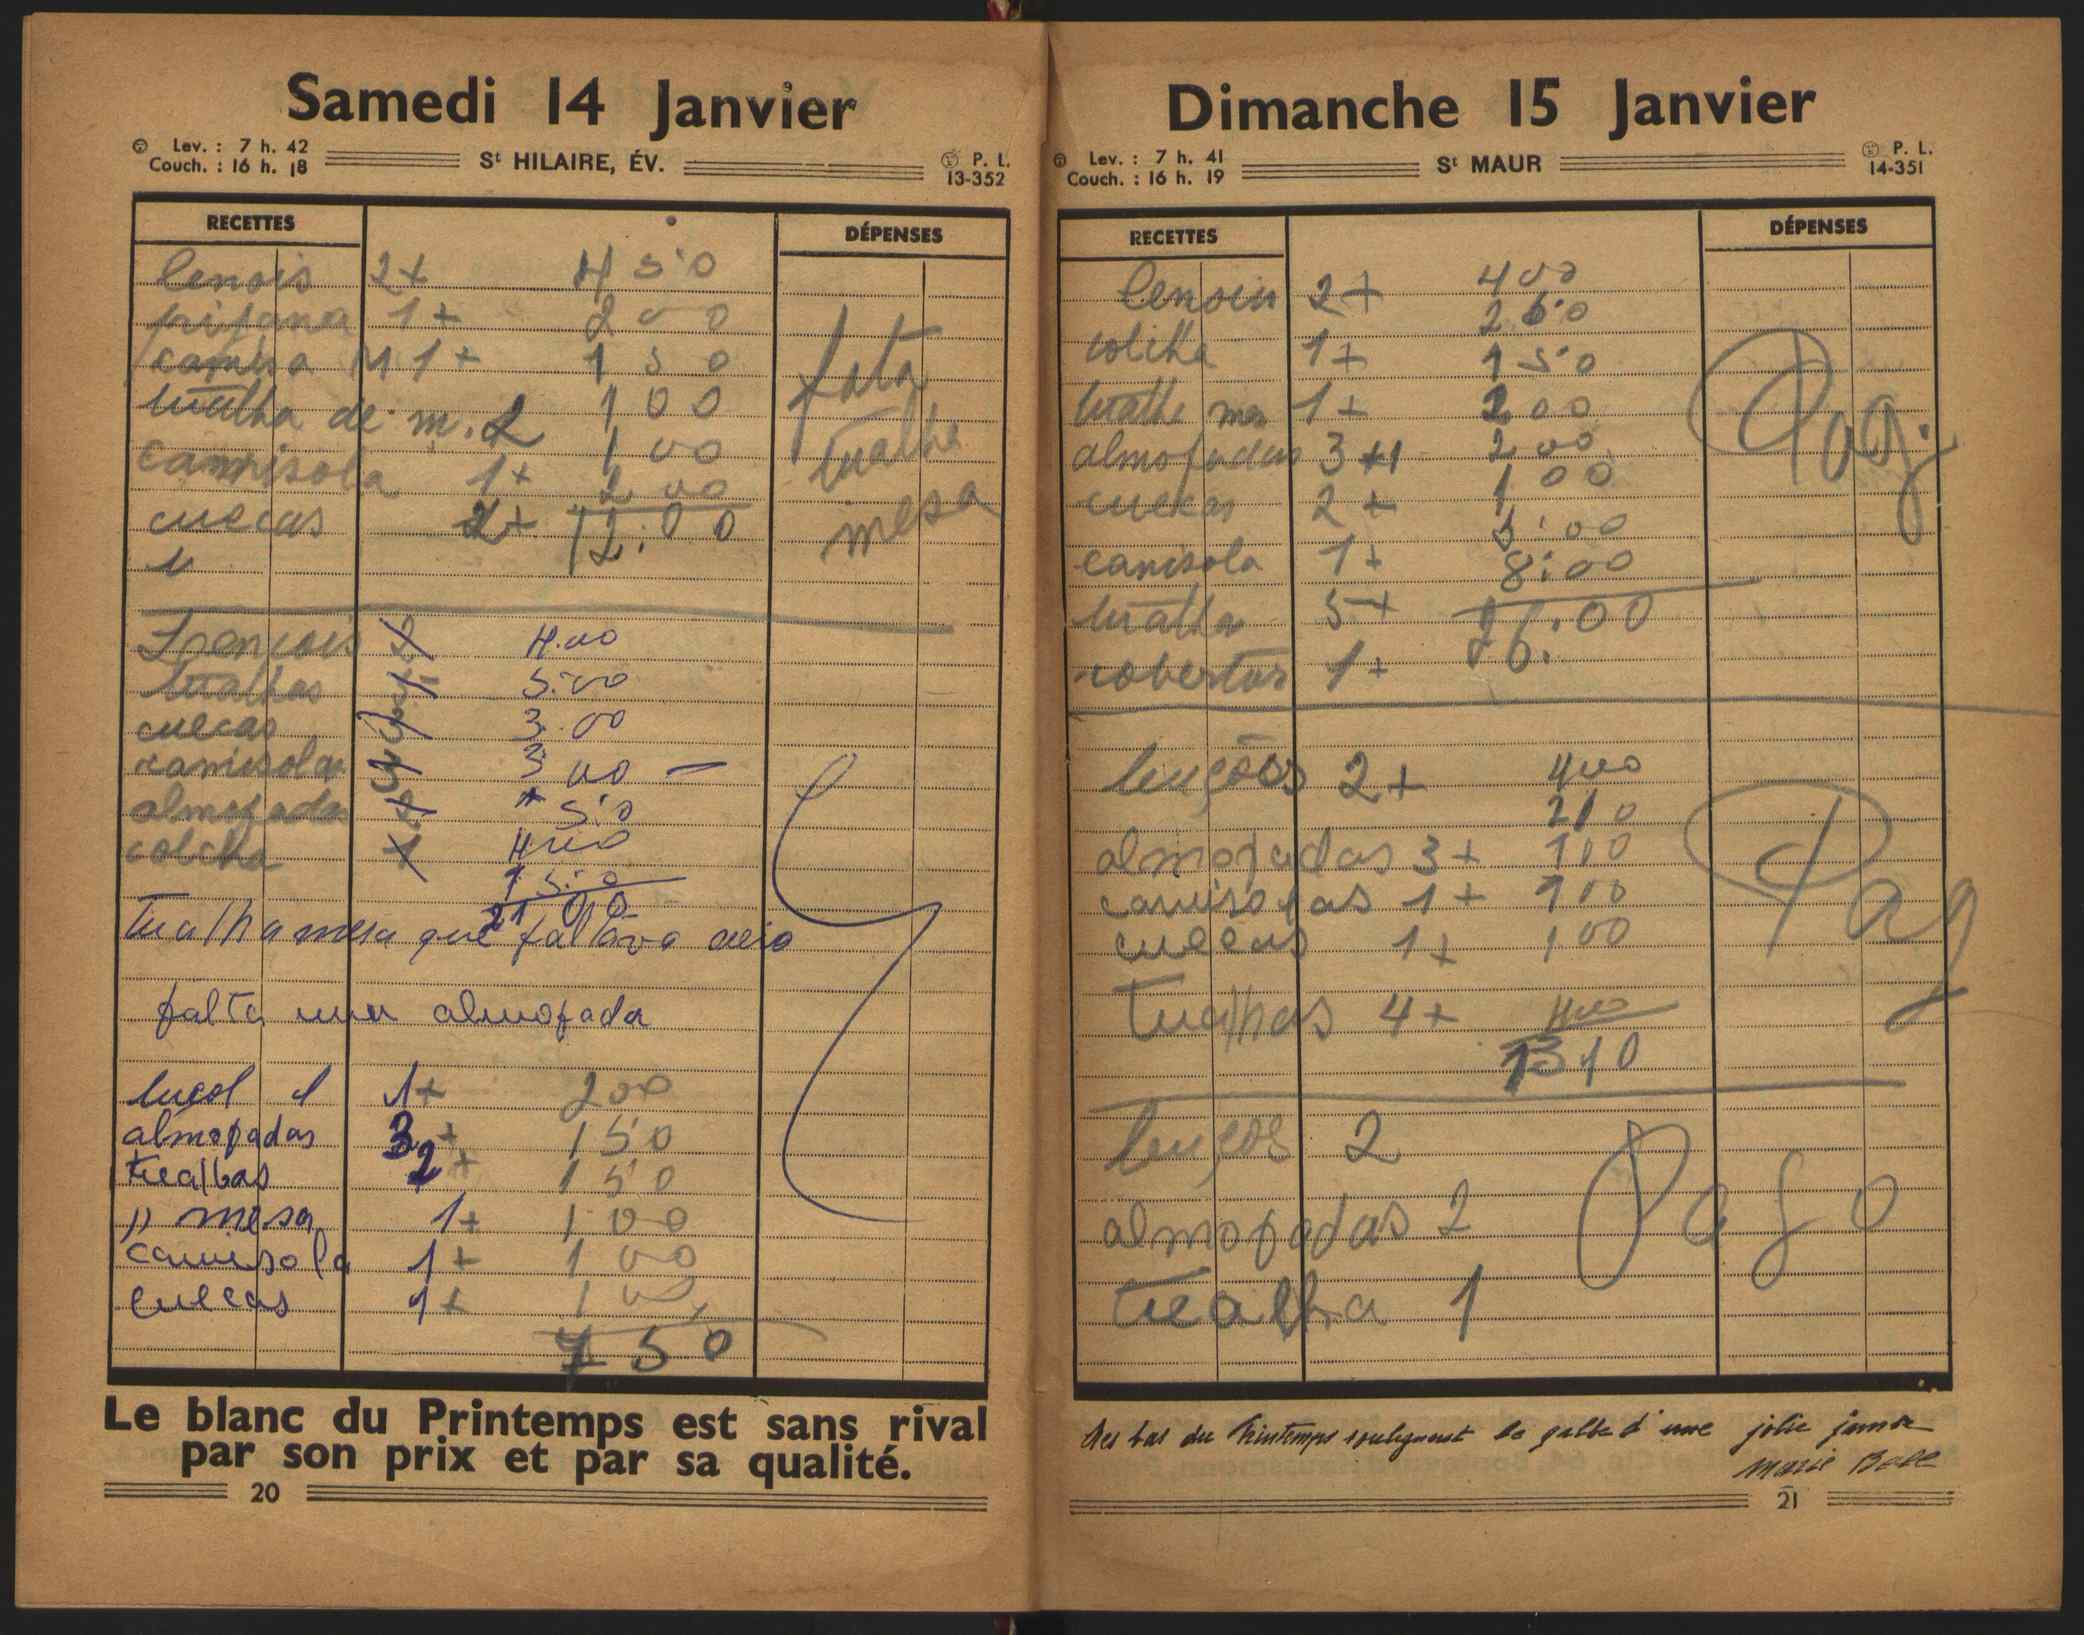 Samedi 14 Janvier
Lev. : 7 h. 42
Couch. : 16 h. 18
St HILAIRE, ÉV.
P. L.
13-352
RECETTES
DÉPENSES
lensois 2+ 4 50
pijama 1+ 2 00
camisa M 1+ 1 50
tualha de m. 2 1 00
cammisola 1+ 1 00
cuecas 2+ 2 00
12.00
fata
tualha
mesa
2 4.00
tualhas 5.00
cuecas 3 3.00
camisolas 3 3 00 —
almofada 2 1 50
colcha 1 4 00
1 50
21 00
Tualha mesa que faltava veio
falta uma almofada
luçol 1 1+ 2 00
almofadas 3+ 1 50
tualhas 2+ 1 50
" mesa 1+ 1 00
camisola 1+ 1 00
cuecas 1+ 1 00
7 50
Le blanc du Printemps est sans rival
par son prix et par sa qualité.
20
Dimanche 15 Janvier
Lev. : 7 h. 41
Couch. : 16 h. 19
St MAUR
P. L.
14-351
RECETTES
DÉPENSES
lensois 2+ 4 00
2 50
colcha 1+ 1 50
tualha mes 1+ 2 00
almofadas 3+1 2 00
cuekas 2+ 1 00
5:00
camisola 1+ 8:00
tualha 5+ 26.00
cobertor 1+
Pag.
luçóes 2+ 4 00
2 10
almofadas 3+ 1 00
camisolas 1+ 1 00
cuecas 1+ 1 00
tualhas 4+ 4 00
13 10
Pag
luçoe 2
almofadas 2
tualha 1
Pago
Les bas du Printemps soulignent le galbe d'une jolie jambe
Marie Bell
21